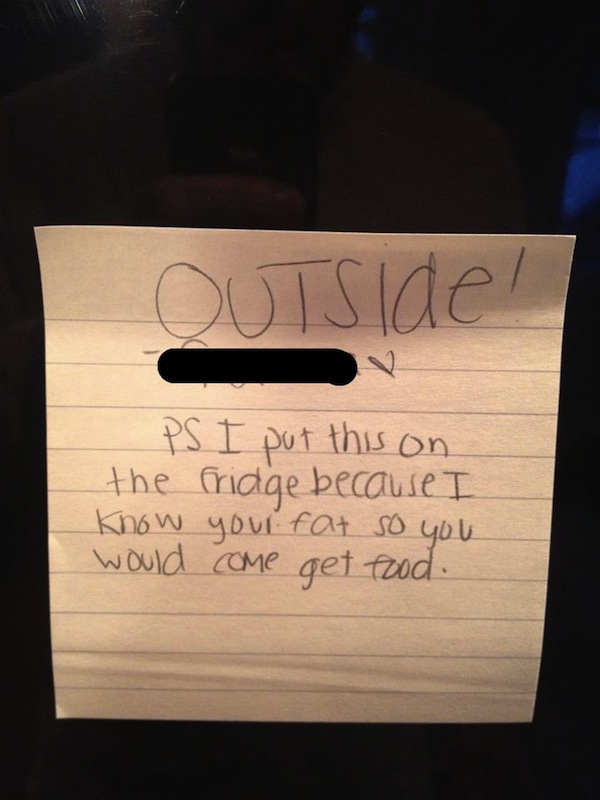 OUTSIde!
PS I put this on
the fridge because I
know your fat so you
would come get food.